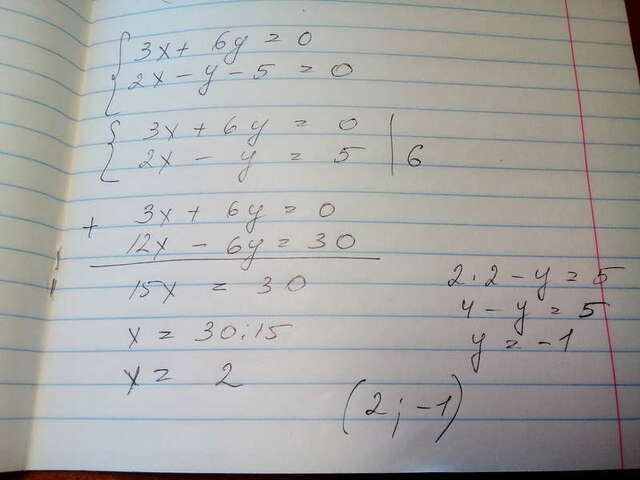 3x + 6y = 0
2x - y - 5 = 0
3x + 6y = 0
2x - y = 5 | 6
+ 3x + 6y = 0
12x - 6y = 30
15x = 30
x = 30:15
x = 2
2·2 - y = 5
4 - y = 5
y = -1
(2; -1)